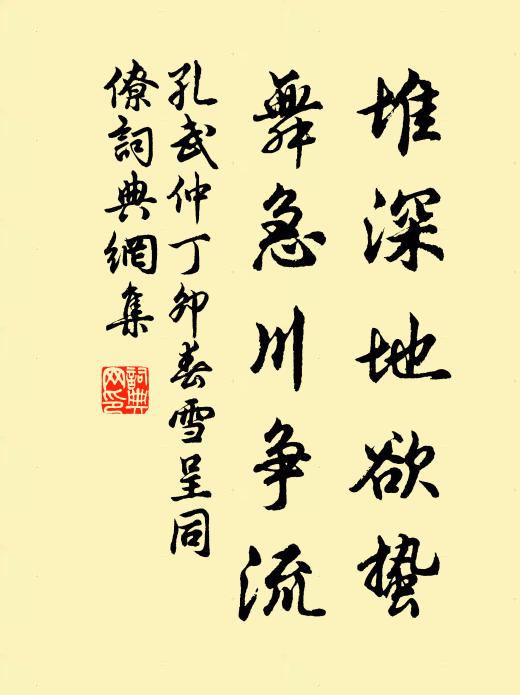 堆深地欲蟄
舞急川争流
孔武仲丁卯春雪呈同
僚詞典網集
詞典
网印